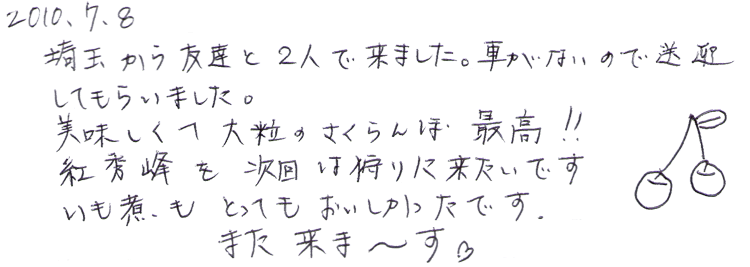 2010.7.8
埼玉から友達と2人で来ました。車がないので送迎
してもらいました。
美味しくて大粒のさくらんぼ最高!!
紅秀峰を次回は狩りに来たいです
いも煮も とってもおいしかったです.
また来ま〜す♡